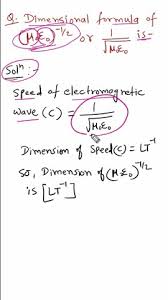 Q: Dimensional formula of
(μ₀ε₀)^-1/2 or 1/√μ₀ε₀ is-
Solⁿ:
Speed of electromagnetic
wave (C) = 1/√μ₀ε₀
Dimension of Speed(c) = LT⁻¹
so, Dimension of (μ₀ε₀)^-1/2
is [LT⁻¹]